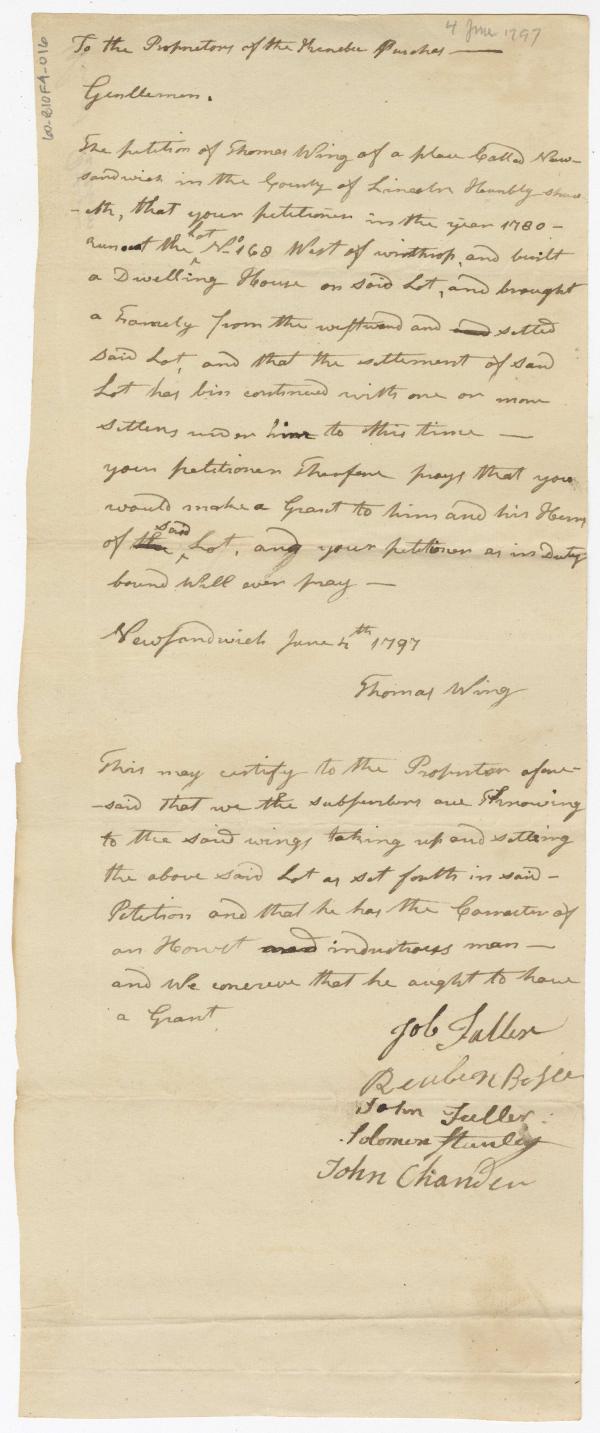 4 June 1797
60-R10F4-016
To the Proprietors of the Kenebec Purches —
Gentlemen.
The petition of Thomas Wing of a place Called New-
sandwich in the County of Lincoln Humbly shew
-eth, that your petitioner in the year 1780 -
run out the Lot No 168 West of winthrop, and built
a Dwelling House on said Lot, and brought
a Famely from the westward and and setled
said Lot, and that the settlement of said
Lot has bin continued with one or more
setlers under him to this time —
your petitioner Therefore prays that you
would make a Grant to him and his Heirs
of the said Lot, and your petitioner as in Duty
bound Will ever pray —
New Sandwich June 4th 1797
Thomas Wing
This may certify to the Proprietor afore-
-said that we the subscribers are Knowing
to the said wings taking up and setling
the above said Lot as set forth in said -
Petition and that he has the Carracter of
an Honest and industrous man —
and We conceive that he aught to have
a Grant
Job Fuller
Reuben
John Fuller
Solomon Stanley
John Chander